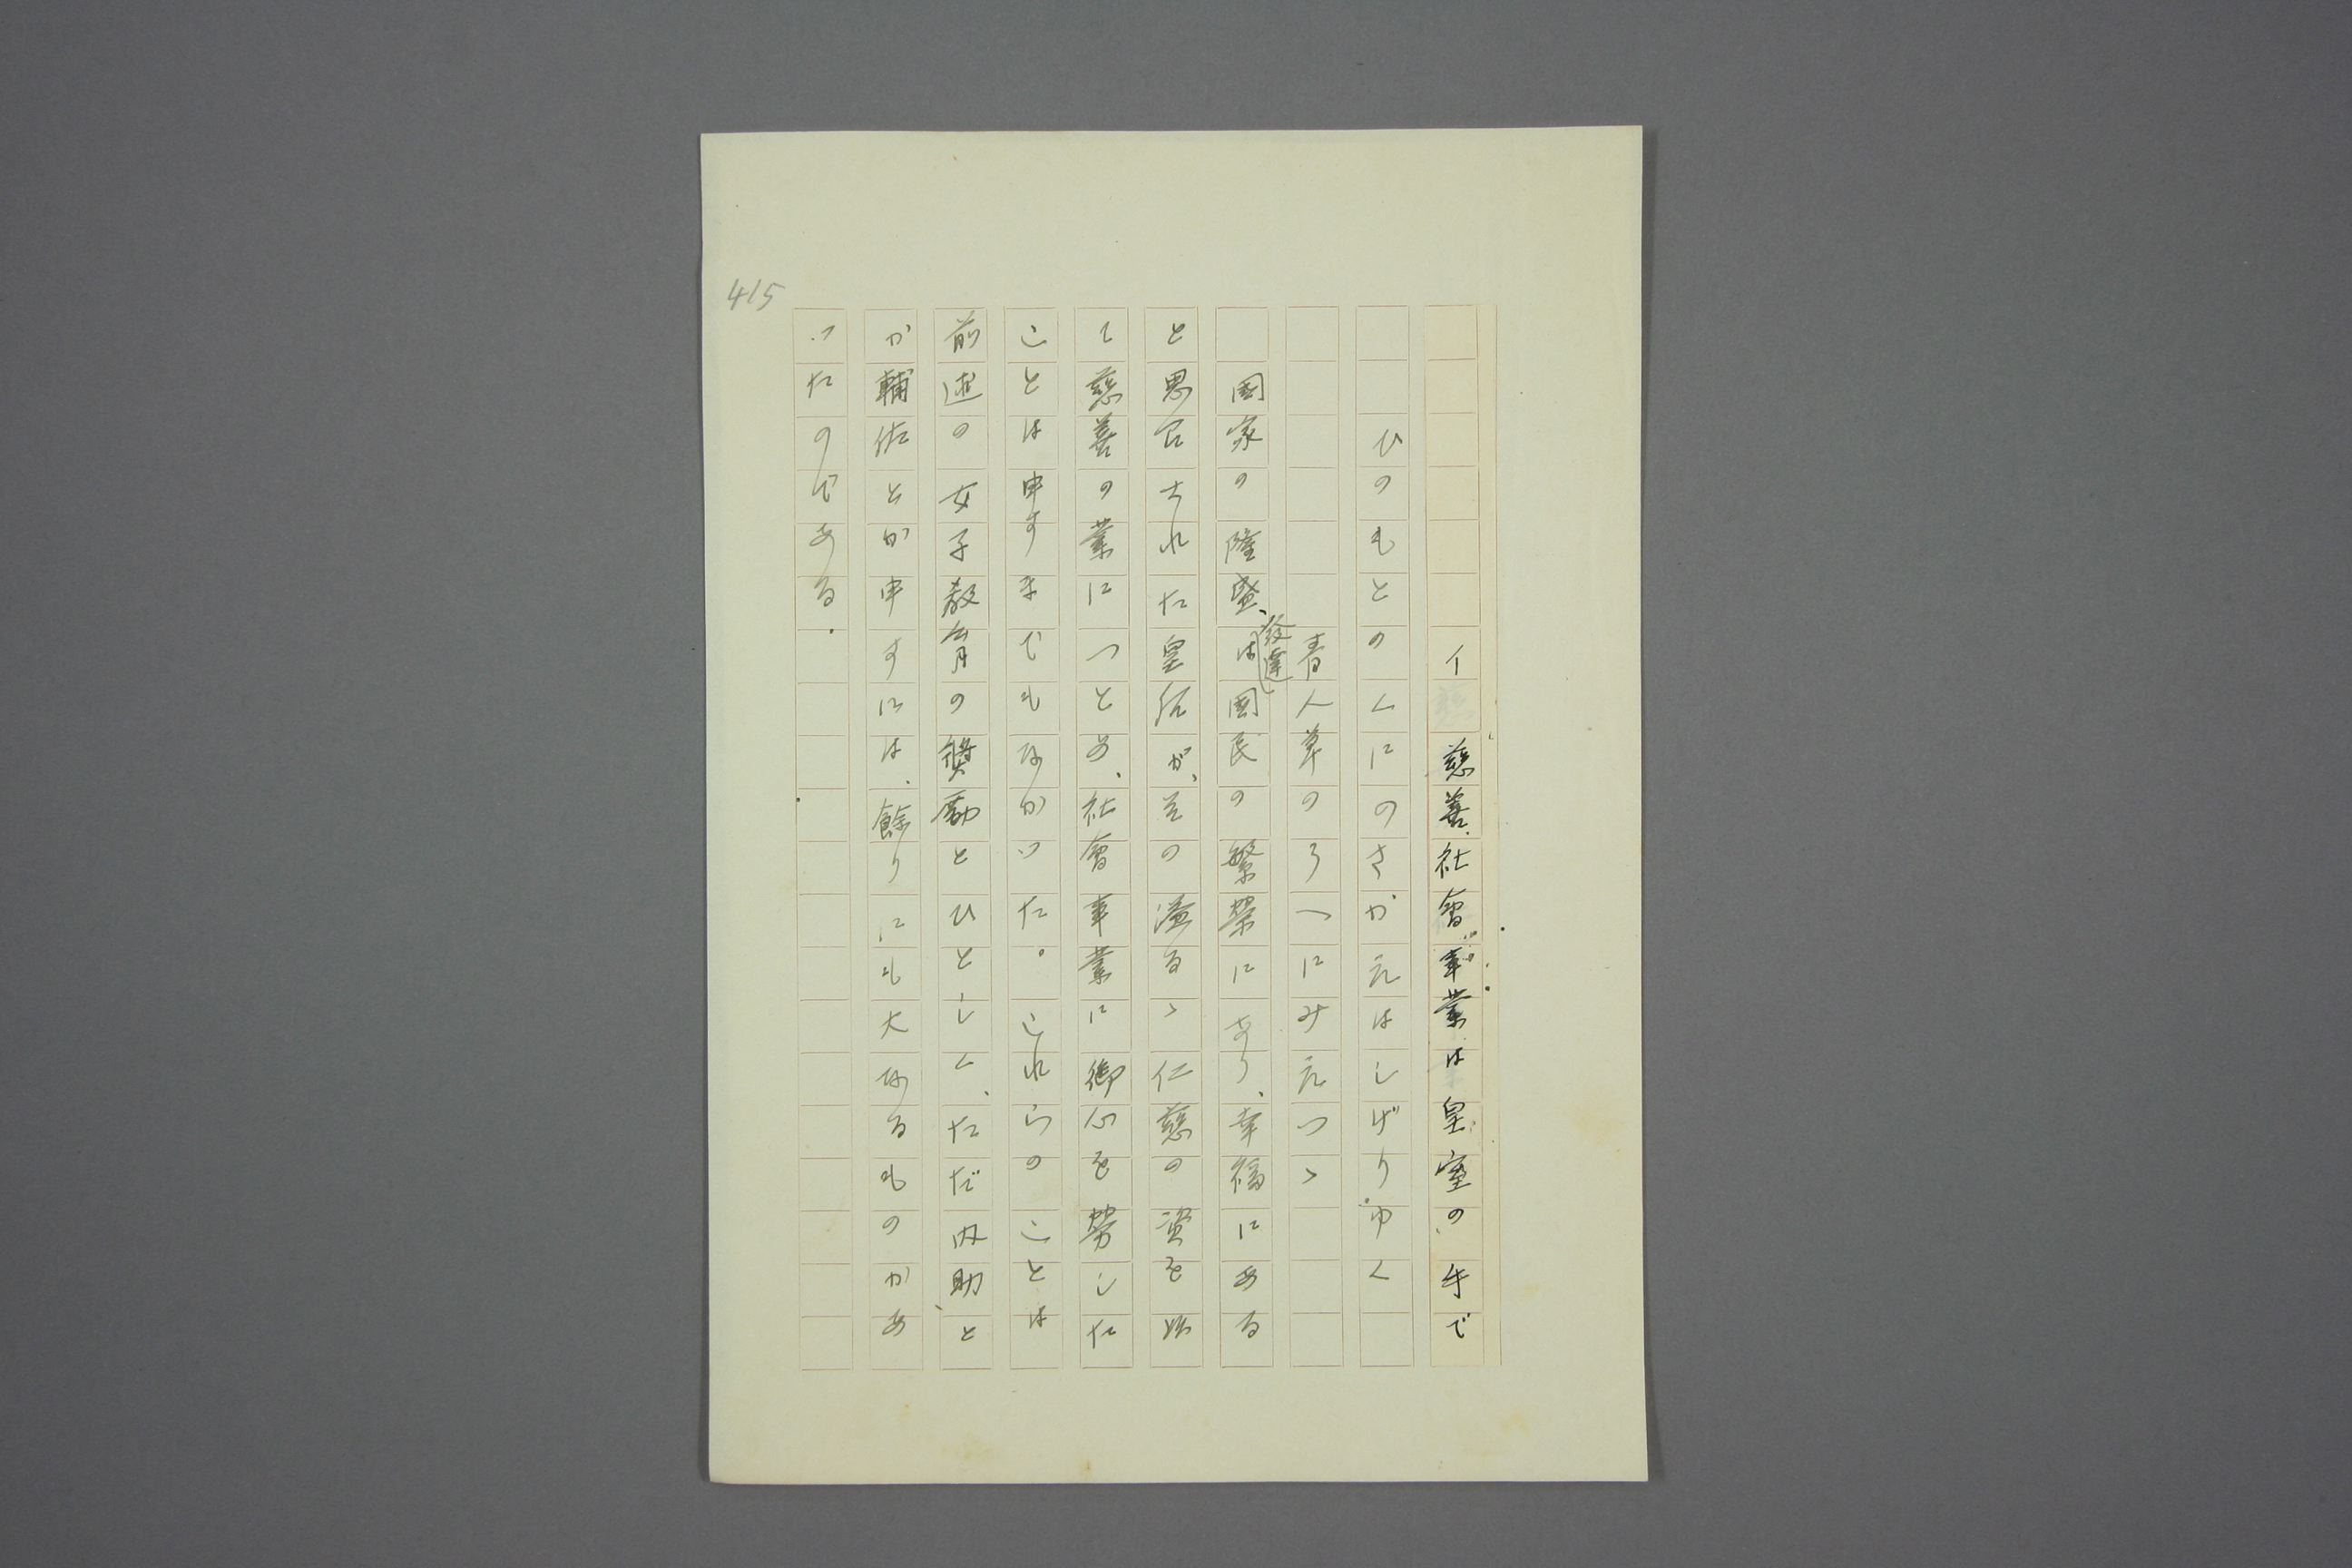 415
イ 慈善社會事業は皇室の手で
ひのもとのくにのさかえはしげりゆく
青人草のうへにみえつゝ
國家の隆盛、發達は國民の繁榮にあり、幸福にある
と思召された皇后が、その溢るゝ仁慈の資を以
て慈善の業につとめ、社會事業に御心を勞した
ことは申すまでもなかつた。これらのことは
前述の女子教育の奬勵とひとしく、ただ内助と
か輔佐とか申すには、餘りにも大なるものがあ
つたのである.